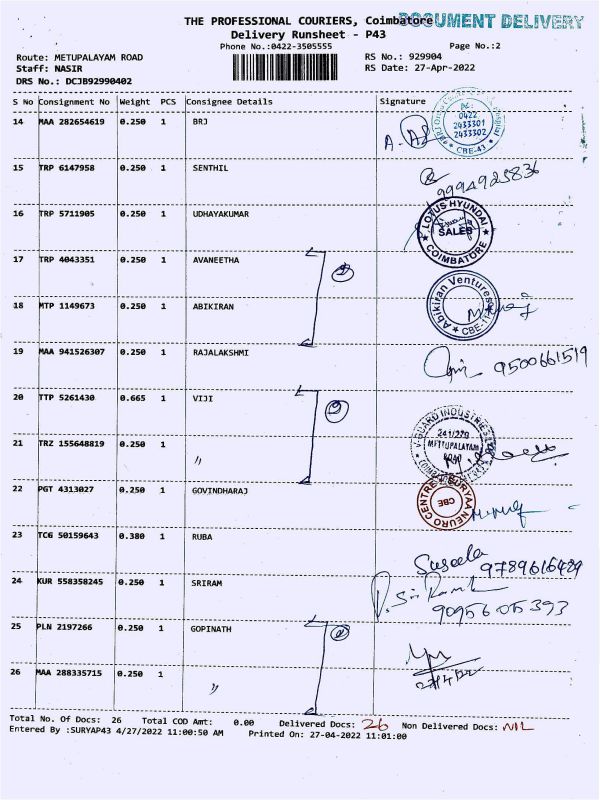 THE PROFESSIONAL COURIERS, Coimbatore DOCUMENT DELIVERY
Delivery Runsheet - P43
Phone No.:0422-3505555 Page No.:2
Route: METUPALAYAM ROAD RS No.: 929904
Staff: NASIR RS Date: 27-Apr-2022
DRS No.: DCJB92990402
S No Consignment No Weight PCS Consignee Details Signature
14 MAA 282654619 0.250 1 BRJ
0422
2433301
2433302
CBE-43
15 TRP 6147958 0.250 1 SENTHIL 9994925836
16 TRP 5711905 0.250 1 UDHAYAKUMAR LOTUS HYUNDAI SALES COIMBATORE
17 TRP 4043351 0.250 1 AVANEETHA 2
18 MTP 1149673 0.250 1 ABIKIRAN Abikiran Ventures
19 MAA 941526307 0.250 1 RAJALAKSHMI 9500661519
20 TTP 5261430 0.665 1 VIJI 2
V-GUARD INDUSTRIES
METTUPALAYAM
21 TRZ 155648819 0.250 1 "
22 PGT 4313027 0.250 1 GOVINDHARAJ SURYAA NEURO CENTRE CBE
23 TCG 50159643 0.380 1 RUBA Suseela 9789616489
24 KUR 558358245 0.250 1 SRIRAM 9095605393
25 PLN 2197266 0.250 1 GOPINATH 2
26 MAA 288335715 0.250 1 "
Total No. Of Docs: 26 Total COD Amt: 0.00 Delivered Docs: 26 Non Delivered Docs: NIL
Entered By :SURYAP43 4/27/2022 11:00:50 AM Printed On: 27-04-2022 11:01:00